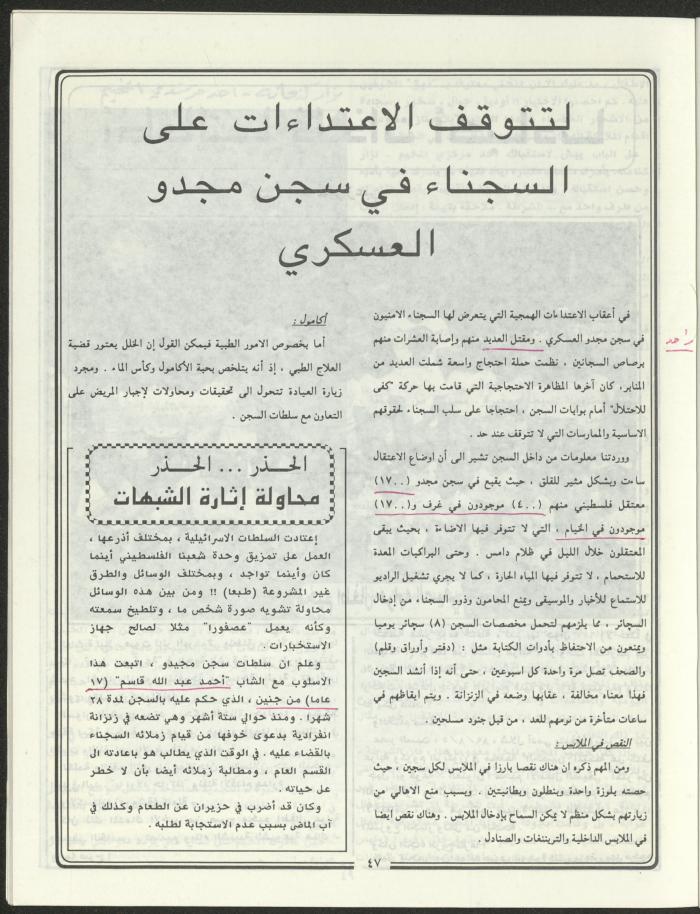 لتتوقف الاعتداءات على
السجناء في سجن مجدو
العسكري
في أعقاب الاعتداءات الهمجية التي يتعرض لها السجناء الامنيون
في سجن مجدو العسكري . ومقتل العديد منهم وإصابة العشرات منهم
برصاص السجانين ، نظمت حملة احتجاج واسعة شملت العديد من
المنابر، كان آخرها المظاهرة الاحتجاجية التي قامت بها حركة "كفى
للاحتلال" أمام بوابات السجن ، احتجاجا على سلب السجناء لحقوقهم
الاساسية والممارسات التي لا تتوقف عند حد .
ووردتنا معلومات من داخل السجن تشير الى أن اوضاع الاعتقال
ساءت وبشكل مثير للقلق ، حيث يقبع في سجن مجدو (١٧٠٠)
معتقل فلسطيني منهم (٤٠٠) موجودون في غرف و(١٧٠٠)
موجودون في الخيام ، التي لا تتوفر فيها الاضاءة ، بحيث يبقى
المعتقلون خلال الليل في ظلام دامس . وحتى البراكيات المعدة
للاستحمام ، لا تتوفر فيها المياه الحارة ، كما لا يجري تشغيل الراديو
للاستماع للأخبار والموسيقى ويمنع المحامون وذوو السجناء من إدخال
السجائر ، مما يلزمهم لتحمل مخصصات السجن (٨) سجائر يوميا
ويمنعون من الاحتفاظ بأدوات الكتابة مثل : (دفتر وأوراق وقلم)
والصحف تصل مرة واحدة كل اسبوعين ، حتى أنه إذا أنشد السجين
فهذا معناه مخالفة ، عقابها وضعه في الزنزانة . ويتم ايقاظهم في
ساعات متأخرة من نومهم للعد ، من قبل جنود مسلحين .
النقص في الملابس :
ومن المهم ذكره ان هناك نقصا بارزا في الملابس لكل سجين ، حيث
حصته بلوزة واحدة وبنطلون وبطانيتين . وبسبب منع الاهالي من
زيارتهم بشكل منظم لا يمكن السماح بإدخال الملابس . وهناك نقص ايضا
في الملابس الداخلية والتريننغات والصنادل .
أكامول :
أما بخصوص الامور الطبية فيمكن القول إن الخلل يعتور قضية
العلاج الطبي ، إذ أنه يتلخص بحبة الأكامول وكأس الماء . ومجرد
زيارة العيادة تتحول الى تحقيقات ومحاولات لإجبار المريض على
التعاون مع سلطات السجن .
الحذر ... الحذر
محاولة إثارة الشبهات
إعتادت السلطات الاسرائيلية ، بمختلف أذرعها ،
العمل على تمزيق وحدة شعبنا الفلسطيني أينما
كان وأينما تواجد ، وبمختلف الوسائل والطرق
غير المشروعة (طبعا) !! ومن بين هذه الوسائل
محاولة تشويه صورة شخص ما ، وتلطيخ سمعته
وكأنه يعمل "عصفورا" مثلا لصالح جهاز
الاستخبارات .
وعلم ان سلطات سجن مجيدو ، اتبعت هذا
الاسلوب مع الشاب "أحمد عبد الله قاسم" (١٧
عاما) من جنين ، الذي حكم عليه بالسجن لمدة ٢٨
شهرا . ومنذ حوالي ستة أشهر وهي تضعه في زنزانة
انفرادية بدعوى خوفها من قيام زملائه السجناء
بالقضاء عليه . في الوقت الذي يطالب هو باعادته الى
القسم العام ، ومطالبة زملائه أيضا بأن لا خطر
على حياته .
وكان قد أضرب في حزيران عن الطعام وكذلك في
آب الماضي بسبب عدم الاستجابة لطلبه .
٤٧